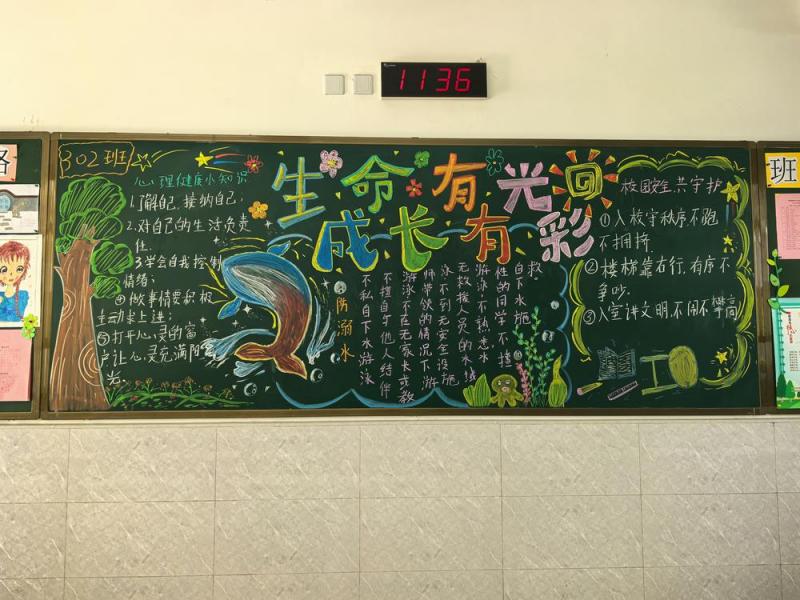 11 36
302班
心理健康小知识
1.了解自己,接纳自己;
2.对自己的生活负责
任
3.学会自我控制
情绪;
④做事情要积极
主动求上进;
⑤打开心灵的窗
户让心灵充满阳
生命有光
成长有彩
防溺水
不私自下水游泳
不擅自与他人结伴
游泳不在无家长或教
师带领的情况下游
泳不到无安全设施
无救援人员的水域
游泳;不熟悉水
性的同学,不擅
自下水施
救.
校园安全,共守护
①入校守秩序,不跑
不拥挤
②楼梯靠右行,有序不
争吵
③入室讲文明,不闹不攀高
班